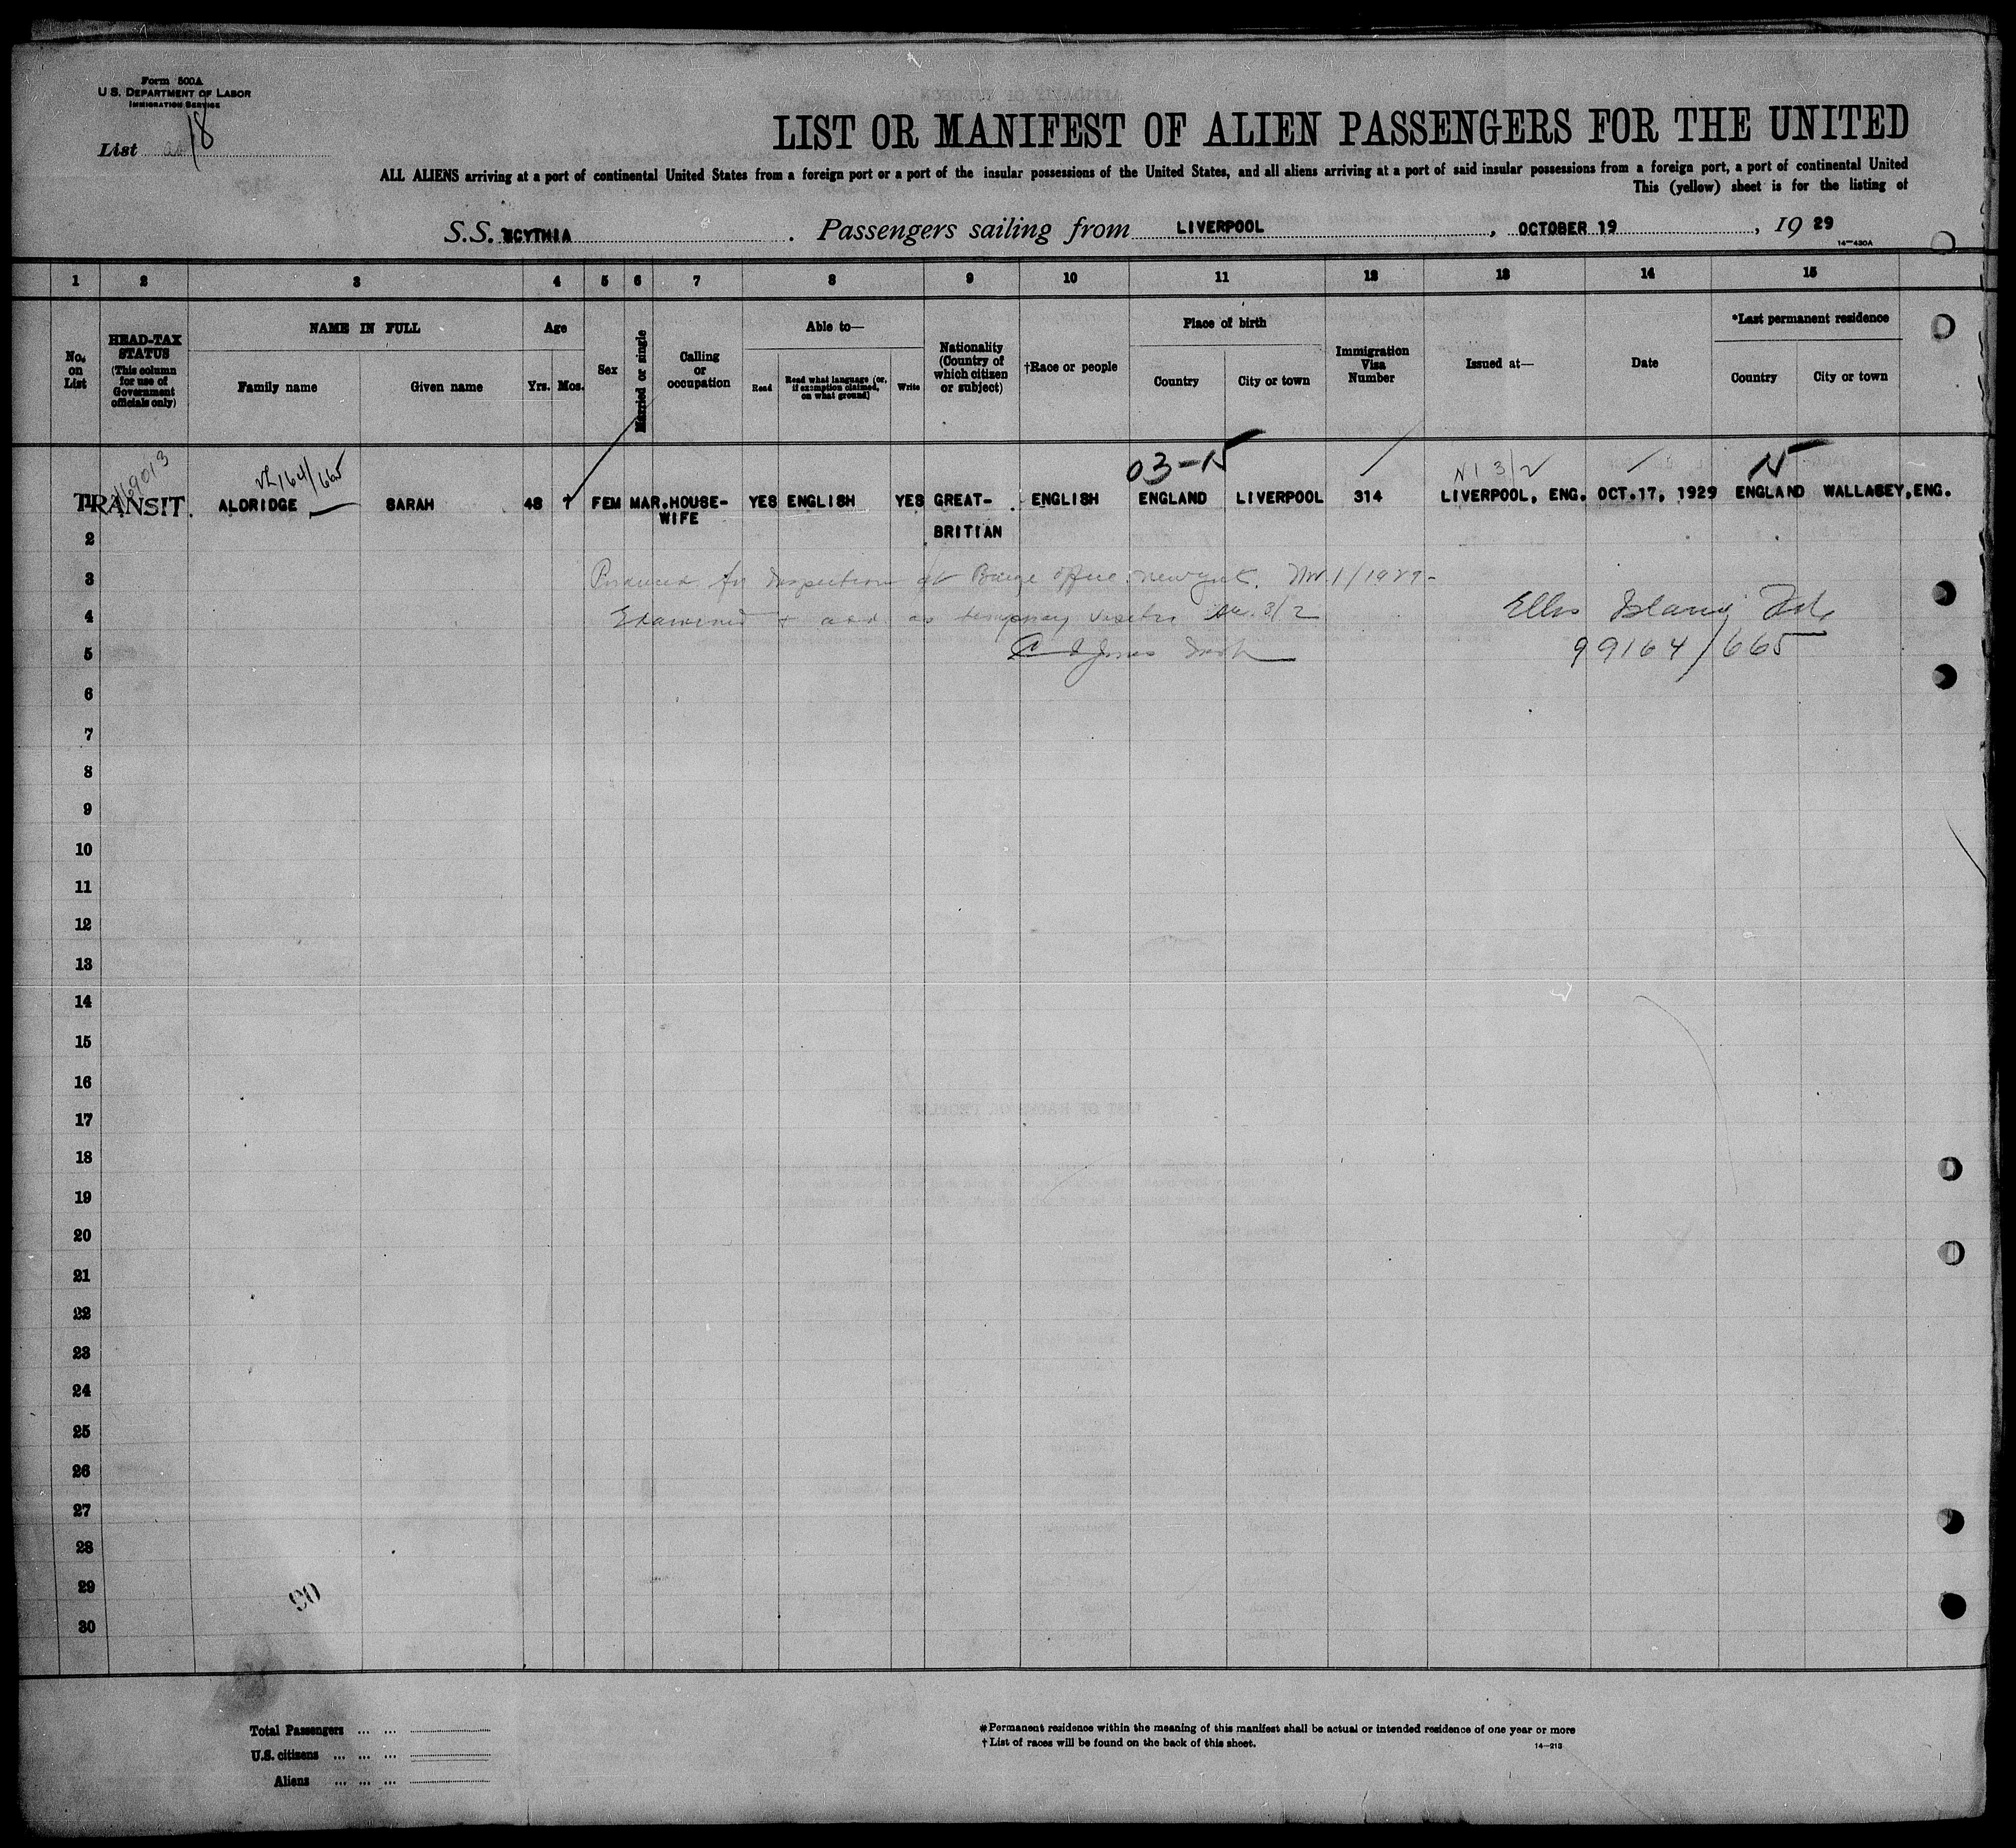 Form 500A
U.S. DEPARTMENT OF LABOR
IMMIGRATION SERVICE
List 18
LIST OR MANIFEST OF ALIEN PASSENGERS FOR THE UNITED
ALL ALIENS arriving at a port of continental United States from a foreign port or a port of the insular possessions of the United States, and all aliens arriving at a port of said insular possessions from a foreign port, a port of continental United
This (yellow) sheet is for the listing of
S.S. SCYTHIA . Passengers sailing from LIVERPOOL , OCTOBER 19 , 19 29
14—430A
1 2 3 4 5 6 7 8 9 10 11 12 13 14 15
No. on List
HEAD-TAX STATUS (This column for use of Government officials only)
NAME IN FULL
Family name Given name
Age
Yrs. Mos.
Sex
Married or single
Calling or occupation
Able to—
Read
Read what language (or, if exemption claimed, on what ground)
Write
Nationality (Country of which citizen or subject)
†Race or people
Place of birth
Country City or town
Immigration Visa Number
Issued at—
Date
*Last permanent residence
Country City or town
164/665
03-N N1 3/2 N
1 TRANSIT. ALDRIDGE SARAH 48 7 FEM MAR. HOUSE- YES ENGLISH YES GREAT- ENGLISH ENGLAND LIVERPOOL 314 LIVERPOOL, ENG. OCT.17, 1929 ENGLAND WALLASEY,ENG.
WIFE
2 BRITIAN
3 Produced for Inspection at Barge office. New York. Nov. 1/1929-
4 Examined + adm as temporary visitor 3/2 Ellis Island File
5 99164/665
6
7
8
9
10
11
12
13
14
15
16
17
18
19
20
21
22
23
24
25
26
27
28
29
30
90
Total Passengers ... ...
U.S. citizens ... ... ...
Aliens ... ... ...
*Permanent residence within the meaning of this manifest shall be actual or intended residence of one year or more
†List of races will be found on the back of this sheet.
14—213